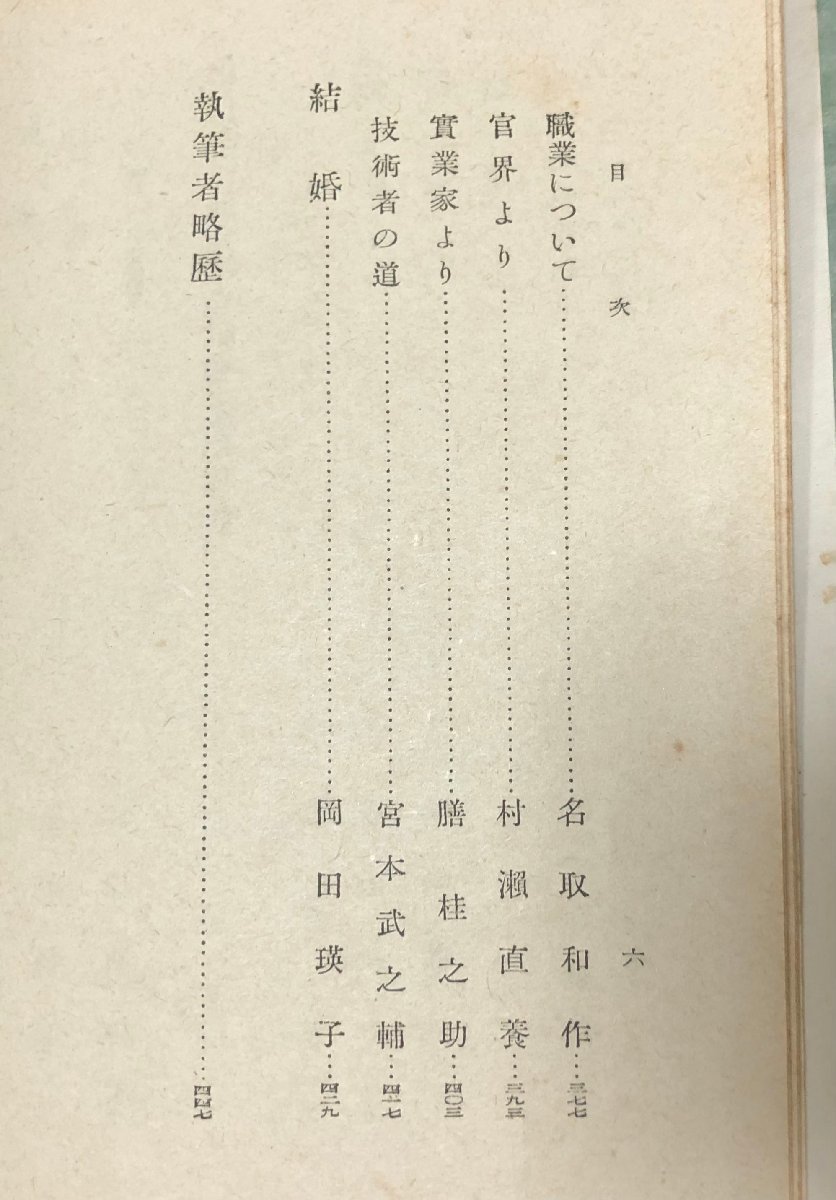 目次 六
職業について……名取和作…三七七
官界より……村瀬直養…三九三
實業家より……膳桂之助…四〇三
技術者の道……宮本武之輔…四一七
結婚……岡田瑛子…四二九
執筆者略歷……四四七